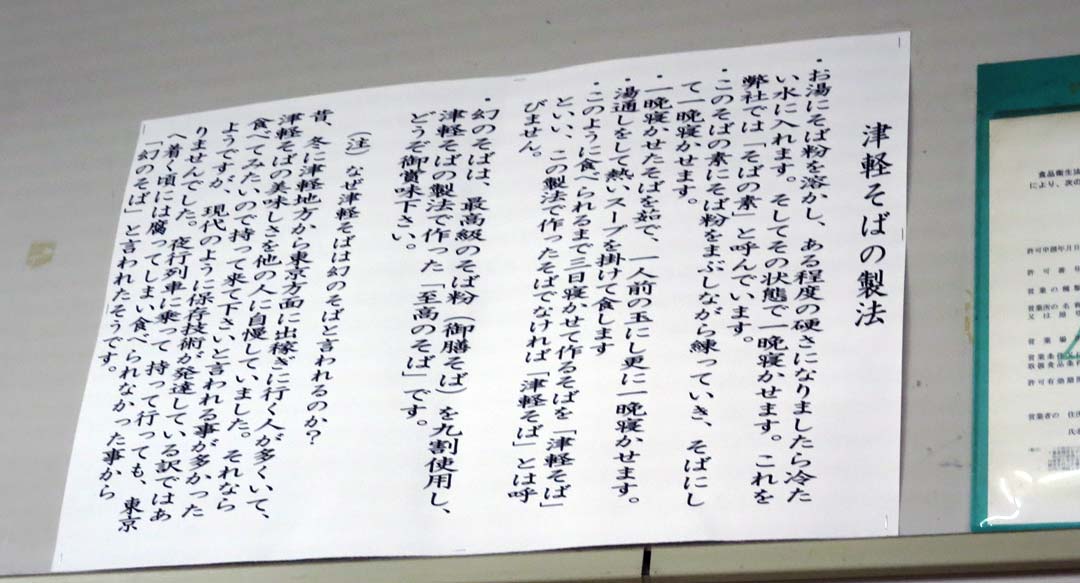 津軽そばの製法
・お湯にそば粉を溶かし、ある程度の硬さになりましたら冷た
い水に入れます。そしてその状態で一晩寝かせます。これを
弊社では「そばの素」と呼んでいます。
・このそばの素にそば粉をまぶしながら練っていき、そばにし
て一晩寝かせます。
・一晩寝かせたそばを茹で、一人前の玉にし更に一晩寝かせます。
・湯通しをして熱いスープを掛けて食します
・このように食べられるまで三日寝かせて作るそばを「津軽そば」
といい、この製法で作ったそばでなければ「津軽そば」とは呼
びません。
・幻のそばは、最高級のそば粉（御膳そば）を九割使用し、
津軽そばの製法で作った「至高のそば」です。
どうぞ御賞味下さい。
（注）なぜ津軽そばは幻のそばと言われるのか？
昔、冬に津軽地方から東京方面に出稼ぎに行く人が多くいて、
津軽そばの美味しさを他の人に自慢していました。それなら
食べてみたいので持って来て下さいと言われる事が多かった
ようですが、現代のように保存技術が発達している訳ではあ
りませんでした。夜行列車に乗って持って行っても、東京
へ着く頃には腐ってしまい食べられなかった事から
「幻のそば」と言われたそうです。
食品衛生法
により、次の
許可年月日
許可番号
営業の種類
営業所の名称
又は屋号
営業
営業者の 住所
氏名